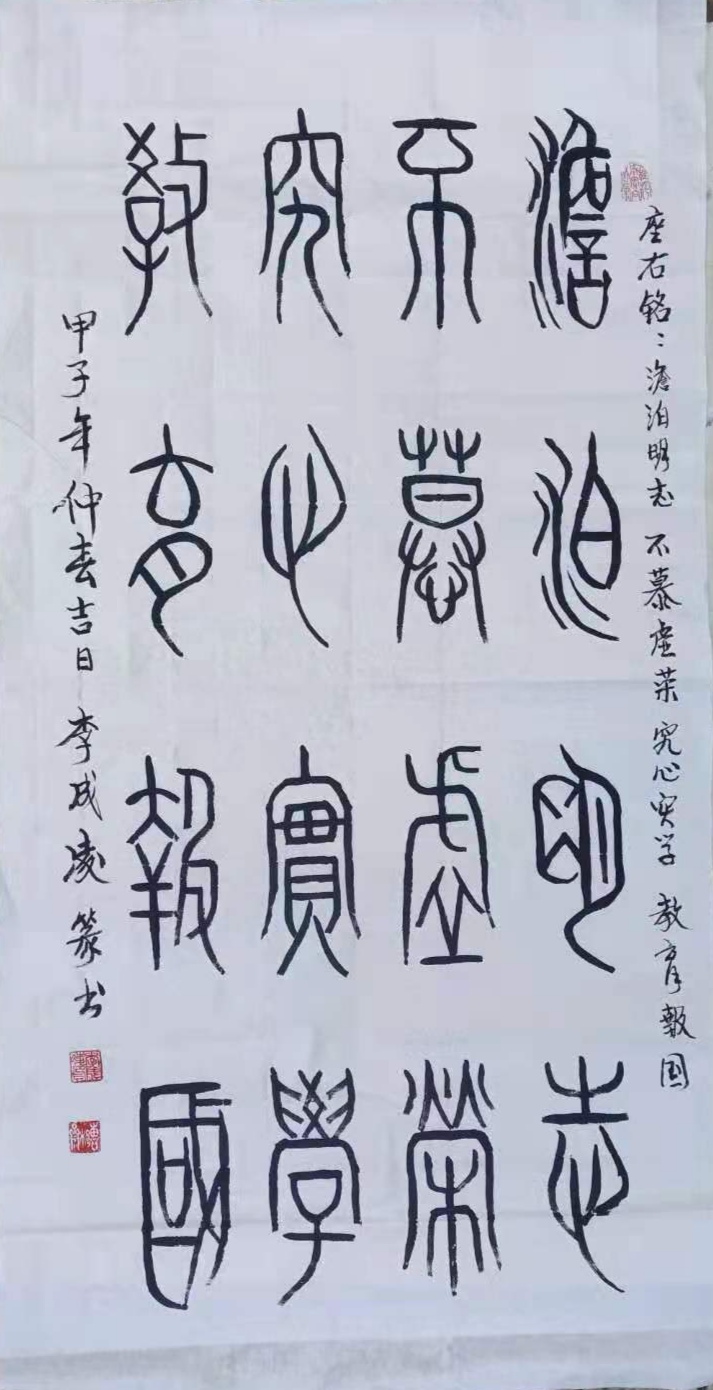 座右铭：澹泊明志 不慕虚荣 究心实学 教育報国
澹泊明志
不慕虚榮
究心實學
教育報國
甲子年仲春吉日 李成凌 篆书